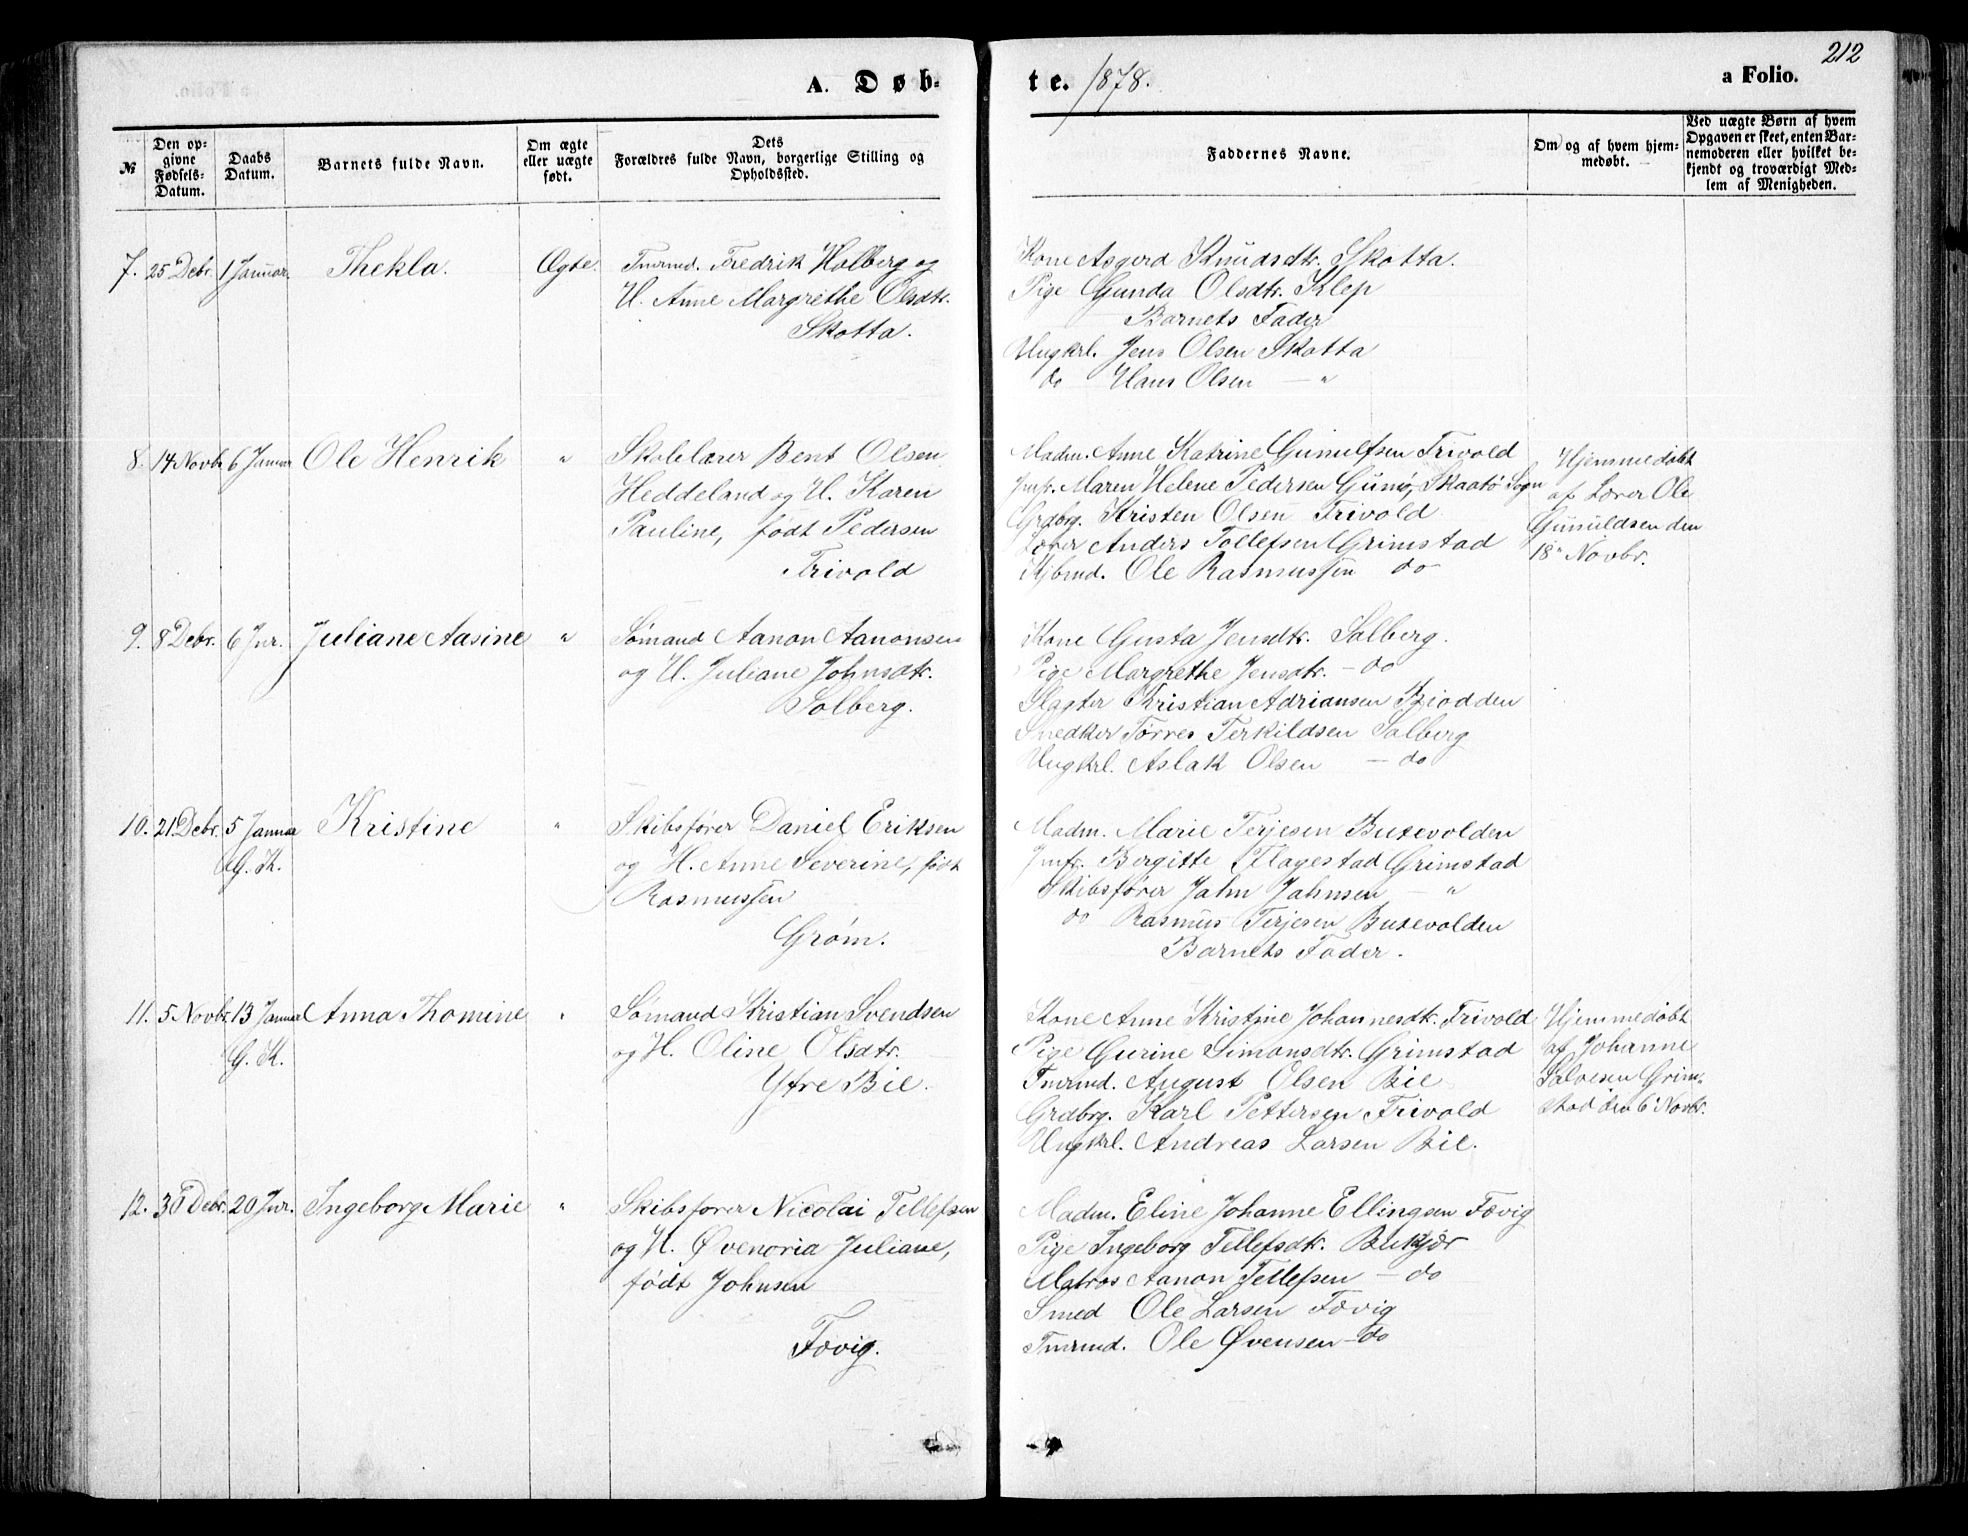 212
A. Døb-
te. 1878.
a Folio.
№
Den op-
givne
Fødsels-
Datum.
Daabs
Datum.
Barnets fulde Navn.
Om ægte
eller uægte
født.
Dets
Forældres fulde Navn, borgerlige Stilling og
Opholdssted.
Faddernes Navne.
Om og af hvem hjem-
medøbt.
Ved uægte Børn af hvem
Opgaven er skeet, enten Bar-
nemoderen eller hvilket be-
kjendt og troværdigt Med-
lem af Menigheden.
7. 25 Debr. 1 Januar. Thekla. Ægte. Tmrmd. Fredrik Holberg og
H. Anne Margrethe Olsdtr.
Skotta.
Kone Asgerd Knudsdtr. Skotta.
Pige Gunda Olsdtr. Klep
Barnets Fader
Ungkrl. Jens Olsen Skotta
do Hans Olsen — "
8. 14 Novbr 6 Januar Ole Henrik " Skolelærer Bent Olsen
Heddeland og H. Karen
Pauline, født Pedersen
Frivold
Madm. Anne Katrine Gunulfsen Frivold
Jmfr. Maren Helene Pedersen Gumø, Skaatø Sogn
Grdbrg. Kristen Olsen Frivold
Lærer Anders Tollefsen Grimstad
Kjbmd. Ole Rasmussen do
Hjemmedøbt
af Lærer Ole
Gunuldsen den
18 Novbr.
9. 8 Debr. 6 Jnr. Juliane Aasine " Sømand Aanon Aanonsen
og H. Juliane Johnsdtr.
Solberg.
Kone Gusta Jensdtr. Solberg.
Pige Margrethe Jensdtr. — do
Slagter Kristian Adriansen Bziodden
Snedker Torres Terkildsen Solberg
Ungkrl. Aslak Olsen — do
10. 21. Debr. 5 Januar Kristine " Skibsfører Daniel Eriksen
G. K.
og H. Anne Severine, født
Rasmussen
Grøm.
Madm. Marie Terjesen Buxevolden
Jmfr. Birgitte Flagestad Grimstad
Skibsfører Jahn Jahnsen — "
do Rasmus Terjesen Buxevolden
Barnets Fader.
11. 5 Novbr. 13 Januar Anna Thomine " Sømand Kristian Svendsen
G. K.
og H. Oline Olsdtr.
Ytre Bie.
Kone Anne Kristine Johannesdtr. Frivold
Pige Gurine Simonsdtr. Grimstad
Tmrmd. August Olsen Bie
Grdbrg. Karl Pettersen Frivold
Ungkrl. Andreas Larsen Bie.
Hjemmedøbt
af Johanne
Salvesen Grim-
stad den 6 Novbr.
12. 30 Debr. 20 Jnr. Ingeborg Marie " Skibsfører Nicolai Tellefsen
og H. Øvenoria Juliane,
født Johnsen
Fævig.
Madm. Eline Johanne Ellingsen Fævig
Pige Ingeborg Tellefsdtr. Bukjær
Matros Aanon Tellefsen — do
Smed Ole Larsen Fævig
Tmrmd. Ole Øvensen — do